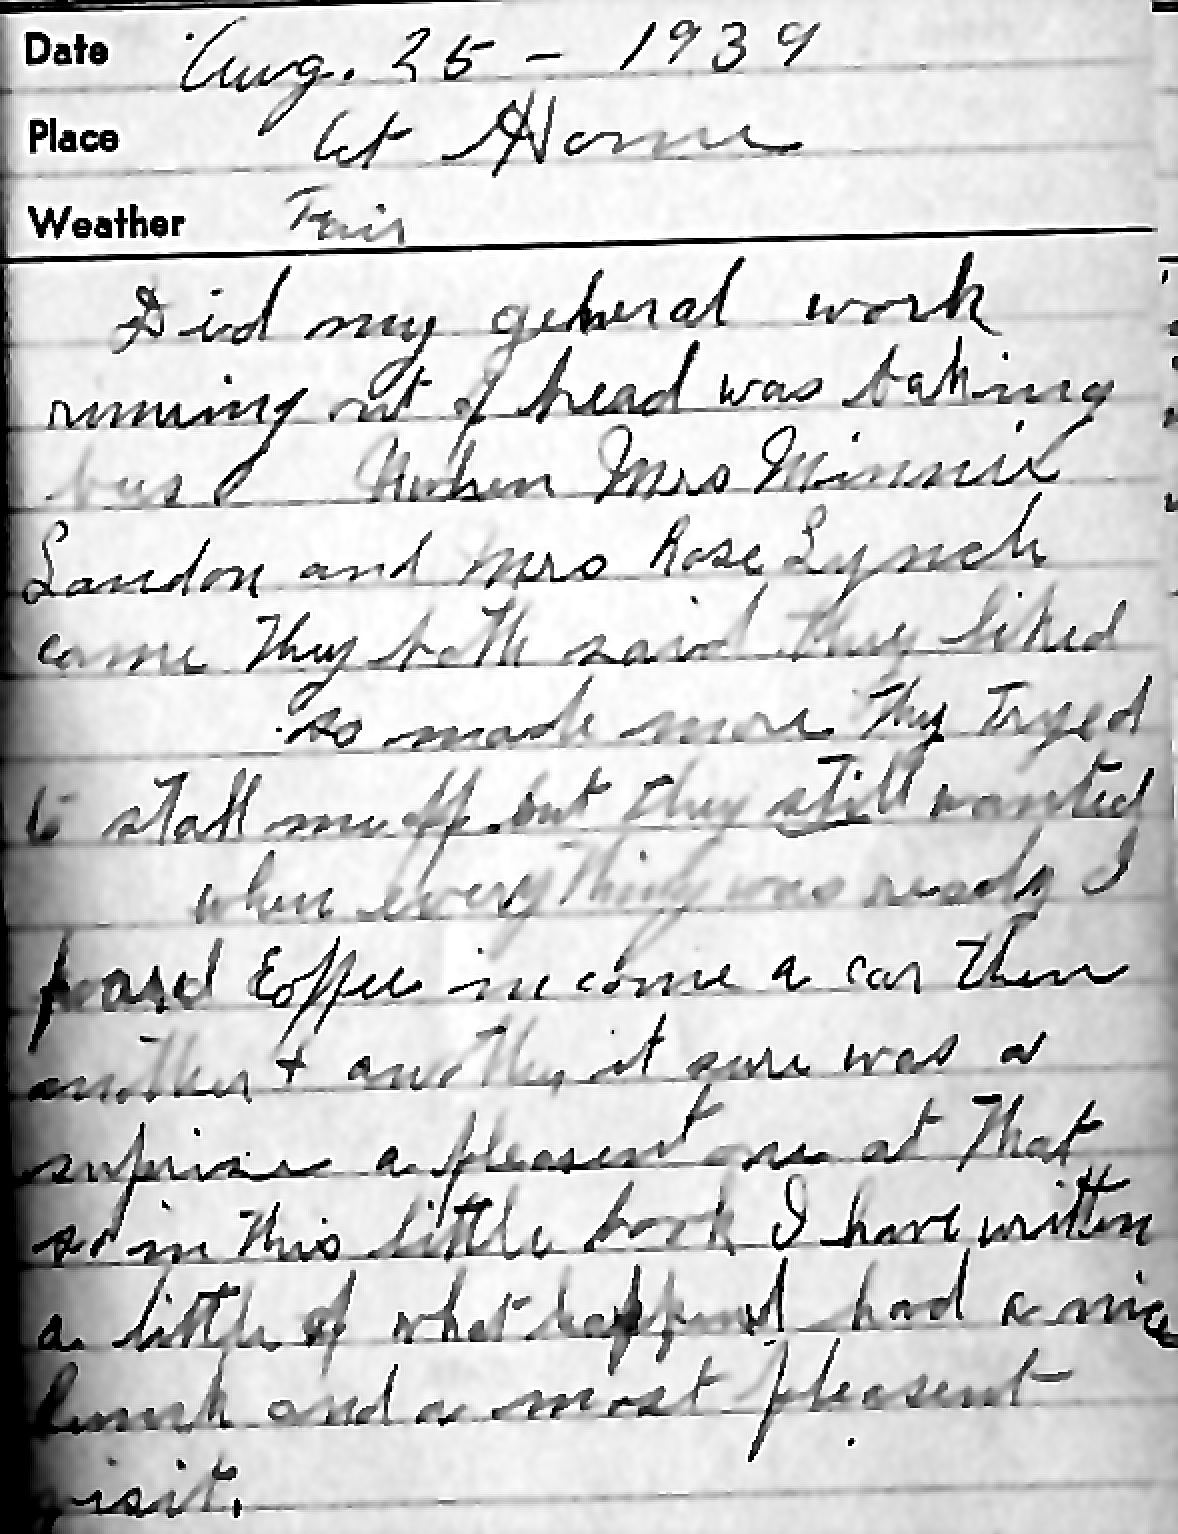 Date Aug. 25 - 1939
Place At Home
Weather Fair
Did my general work
running out of bread was baking
buns when Mrs Minnie
Landon and Mrs Rose Lynch
came They both said they liked
so made more They tryed
to stall me off but they still wanted
when everything was ready I
poared Coffee in come a car then
another + another it sure was a
suprise a pleasent one at that
so in this little book I have written
a little of what happend had a nice
lunch and a most pleasent
visit.